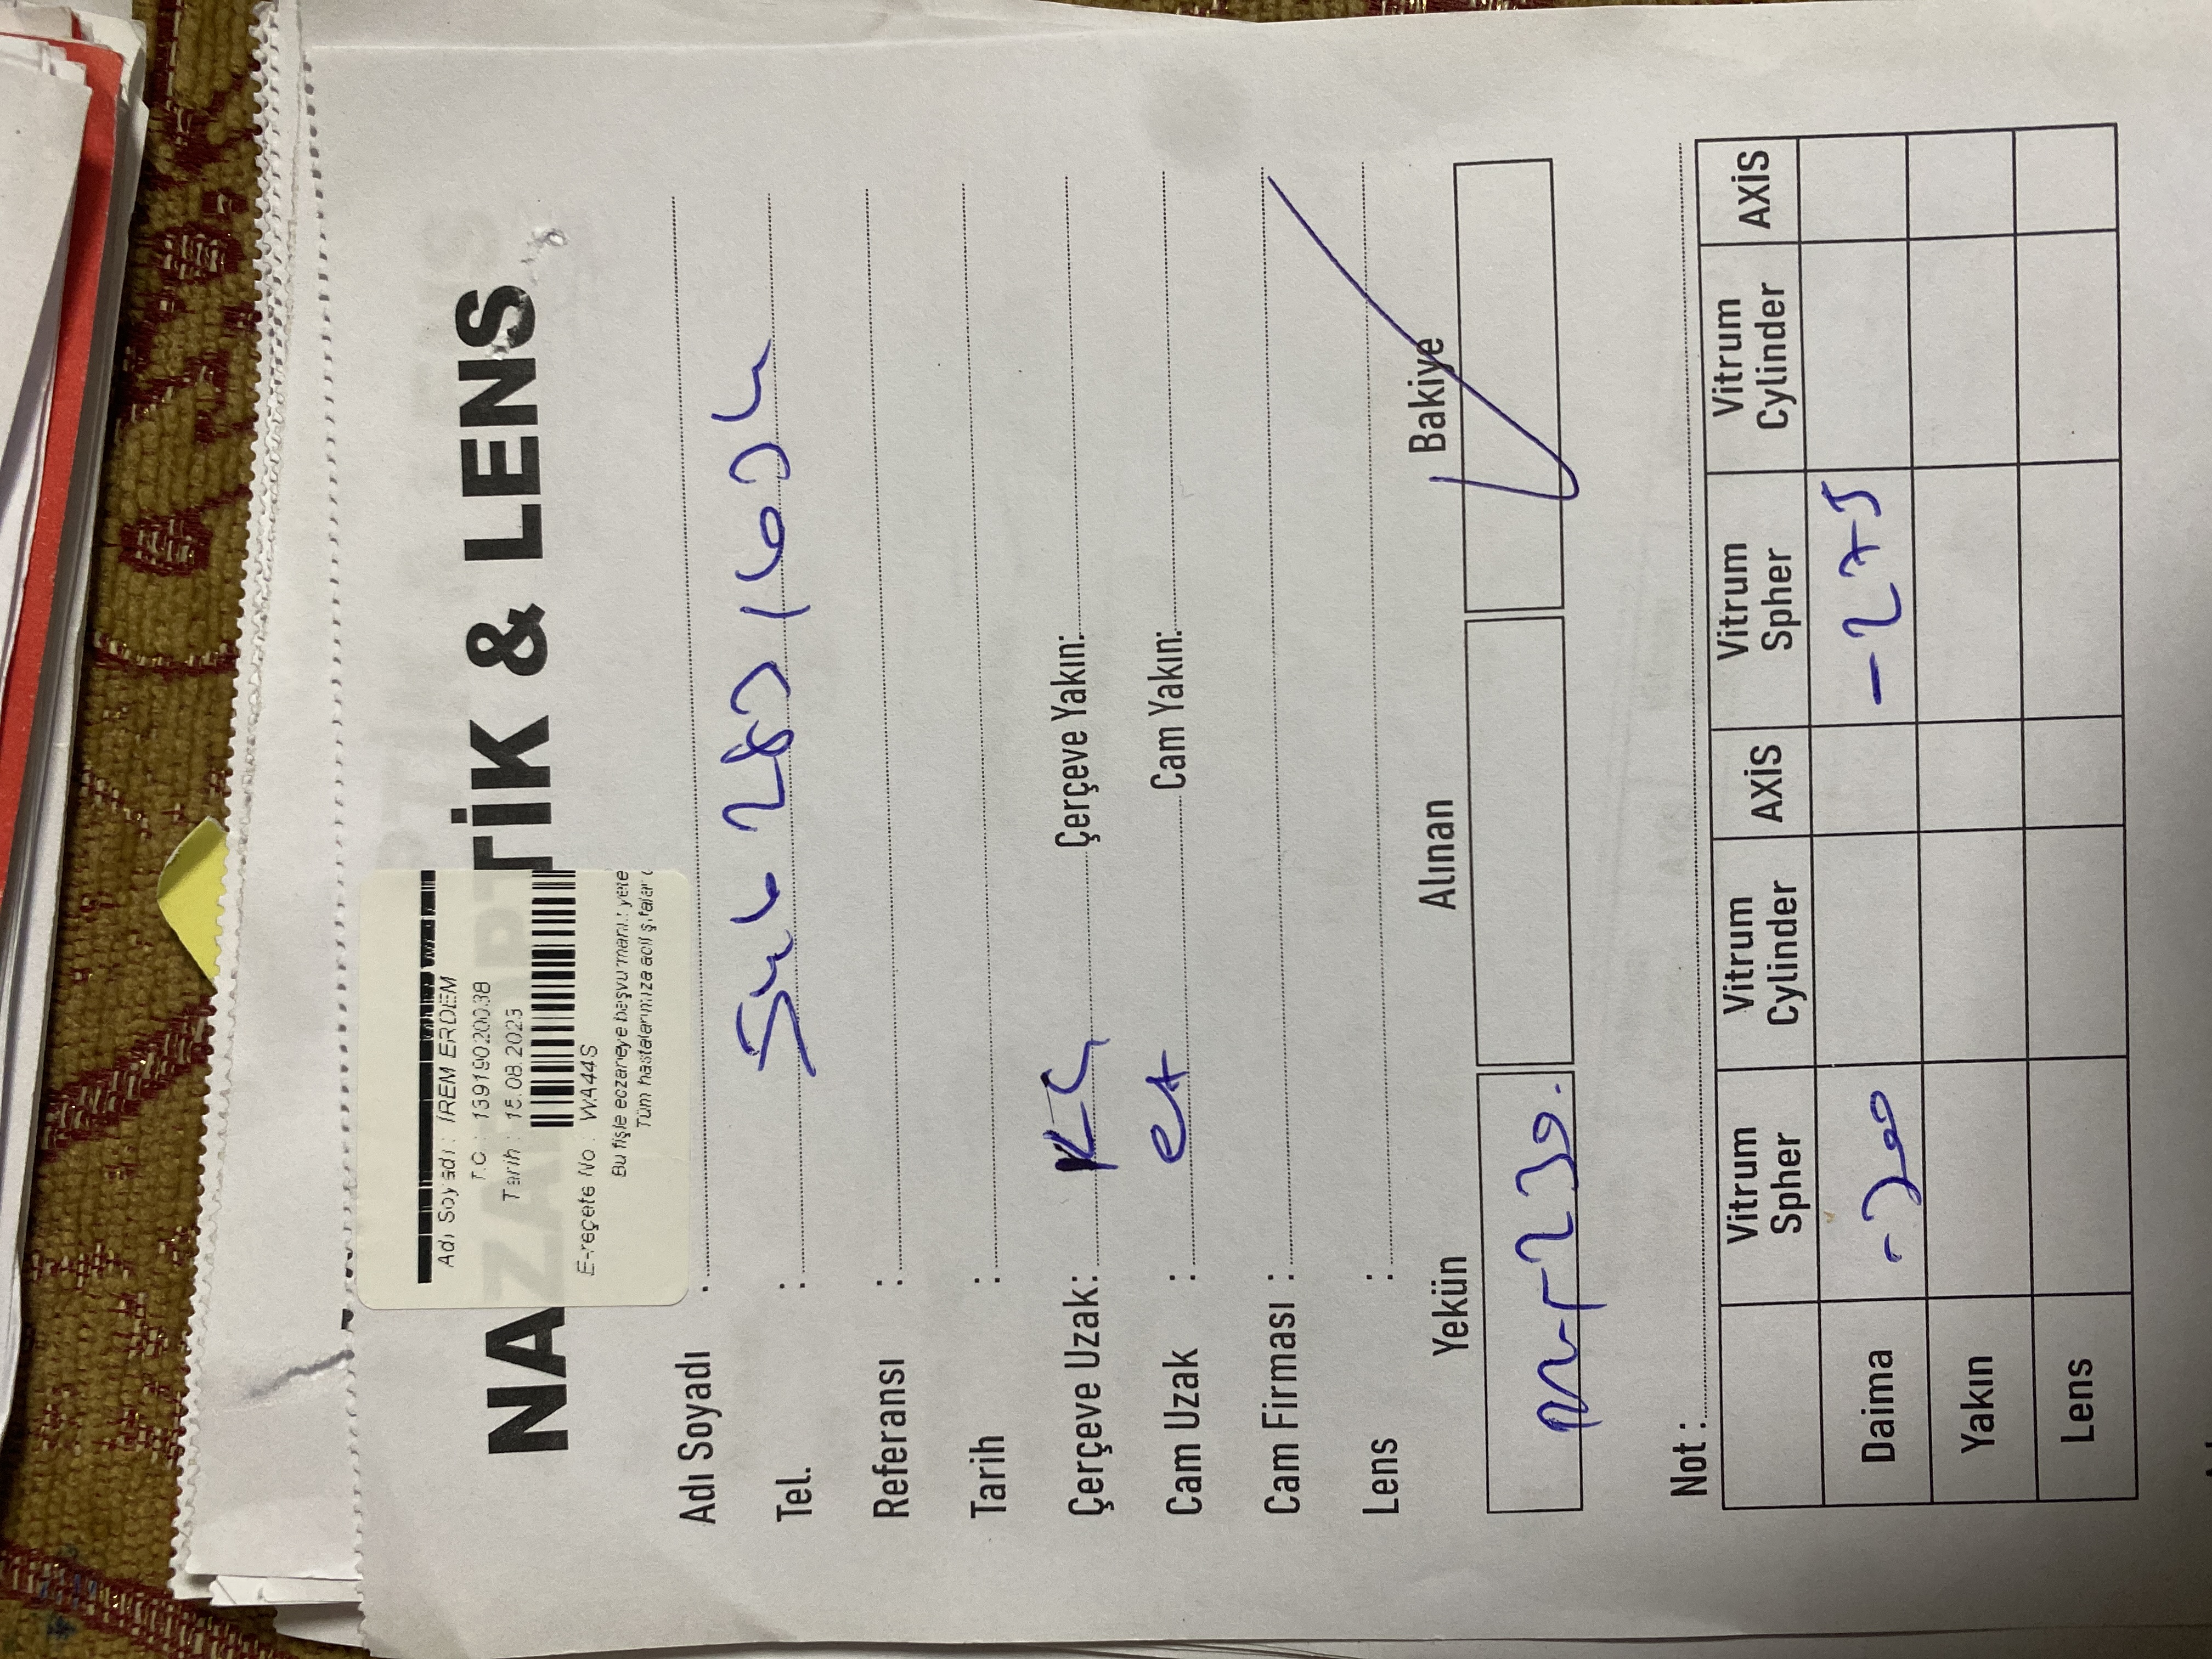 Adı Soyadı : İREM ERDEM
T.C : 13919020038
Tarih : 15.08.2023
E-reçete No : WA44S
Bu fişle eczaneye başvurmanız yete
Tüm hastalarımıza acil şifalar
NAZAR OPTİK & LENS
Adı Soyadı :
Tel. : 546 283 1634
Referansı :
Tarih :
Çerçeve Uzak: KÇ Çerçeve Yakın:
Cam Uzak : Cam Yakın:
Cam Firması :
Lens :
Yekün Alınan Bakiye
230.
Not :
Vitrum Spher Vitrum Cylinder AXİS Vitrum Spher Vitrum Cylinder AXİS
Daima -300 -275
Yakın
Lens